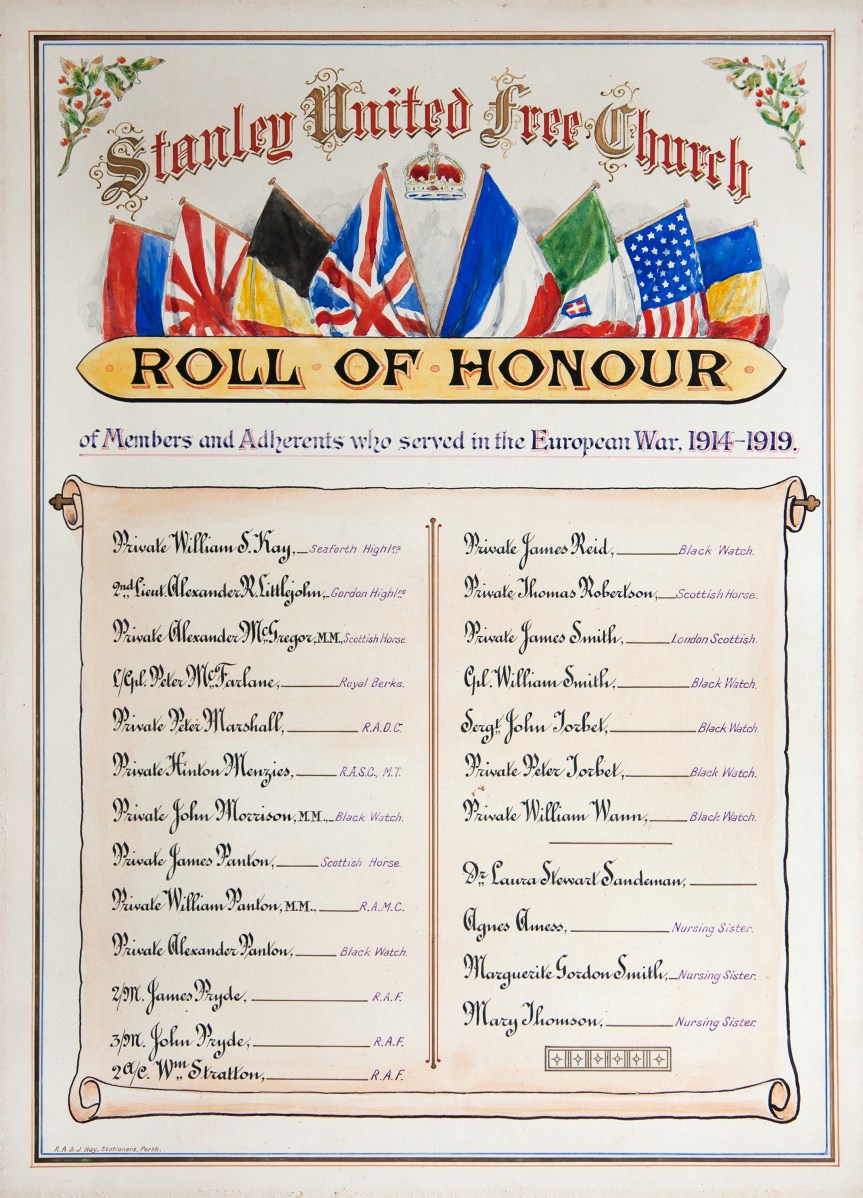 Stanley United Free Church
ROLL OF HONOUR
of Members and Adherents who served in the European War, 1914-1919.
Private William S. Kay, Seaforth Highlrs
2nd Lieut. Alexander R. Littlejohn, Gordon Highlrs
Private Alexander McGregor, M.M., Scottish Horse.
L/Cpl. Peter McFarlane, Royal Berks.
Private Peter Marshall, R.A.O.C.
Private Hinton Menzies, R.A.S.C., M.T.
Private John Morrison, M.M., Black Watch.
Private James Panton, Scottish Horse.
Private William Panton, M.M., R.A.M.C.
Private Alexander Panton, Black Watch.
2/M. James Pryde, R.A.F.
3/M. John Pryde, R.A.F.
2A/C. Wm Stratton, R.A.F.
Private James Reid, Black Watch.
Private Thomas Robertson, Scottish Horse.
Private James Smith, London Scottish.
Cpl. William Smith, Black Watch.
Sergt John Torbet, Black Watch.
Private Peter Torbet, Black Watch.
Private William Wann, Black Watch.
Dr Laura Stewart Sandeman,
Agnes Amess, Nursing Sister.
Marguerite Gordon Smith, Nursing Sister.
Mary Thomson, Nursing Sister.
R.A. & J. Hay, Stationers, Perth.